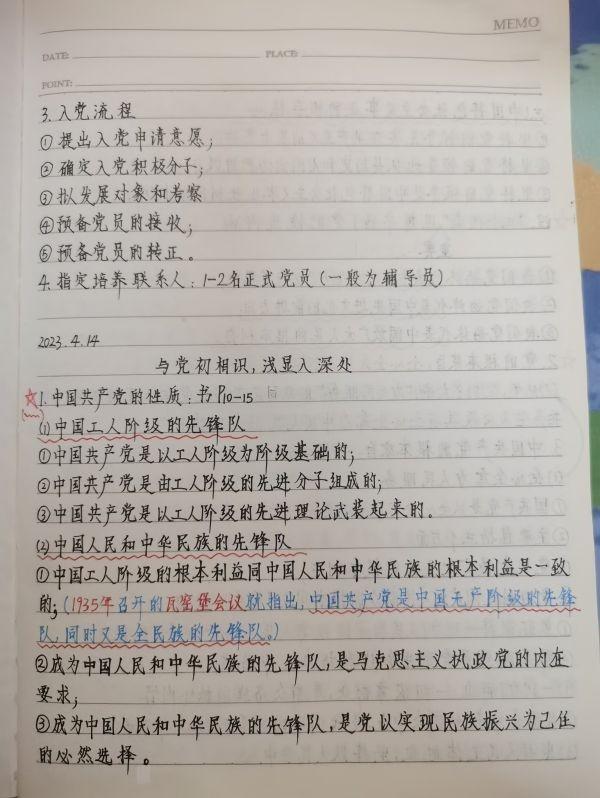 MEMO
DATE: PLACE:
POINT:
3. 入党流程
① 提出入党申请意愿;
② 确定入党积极分子;
③ 拟发展对象和考察
④ 预备党员的接收;
⑤ 预备党员的转正。
4. 指定培养联系人: 1-2名正式党员(一般为辅导员)
2023.4.14
与党初相识,浅显入深处
☆1.中国共产党的性质: 书P10-15
(1)中国工人阶级的先锋队
①中国共产党是以工人阶级为阶级基础的;
②中国共产党是由工人阶级的先进分子组成的;
③中国共产党是以工人阶级的先进理论武装起来的。
(2)中国人民和中华民族的先锋队
①中国工人阶级的根本利益同中国人民和中华民族的根本利益是一致
的;(1935年召开的瓦窑堡会议就指出,中国共产党是中国无产阶级的先锋
队,同时又是全民族的先锋队。)
②成为中国人民和中华民族的先锋队,是马克思主义执政党的内在
要求;
③成为中国人民和中华民族的先锋队,是党以实现民族振兴为己任
的必然选择。